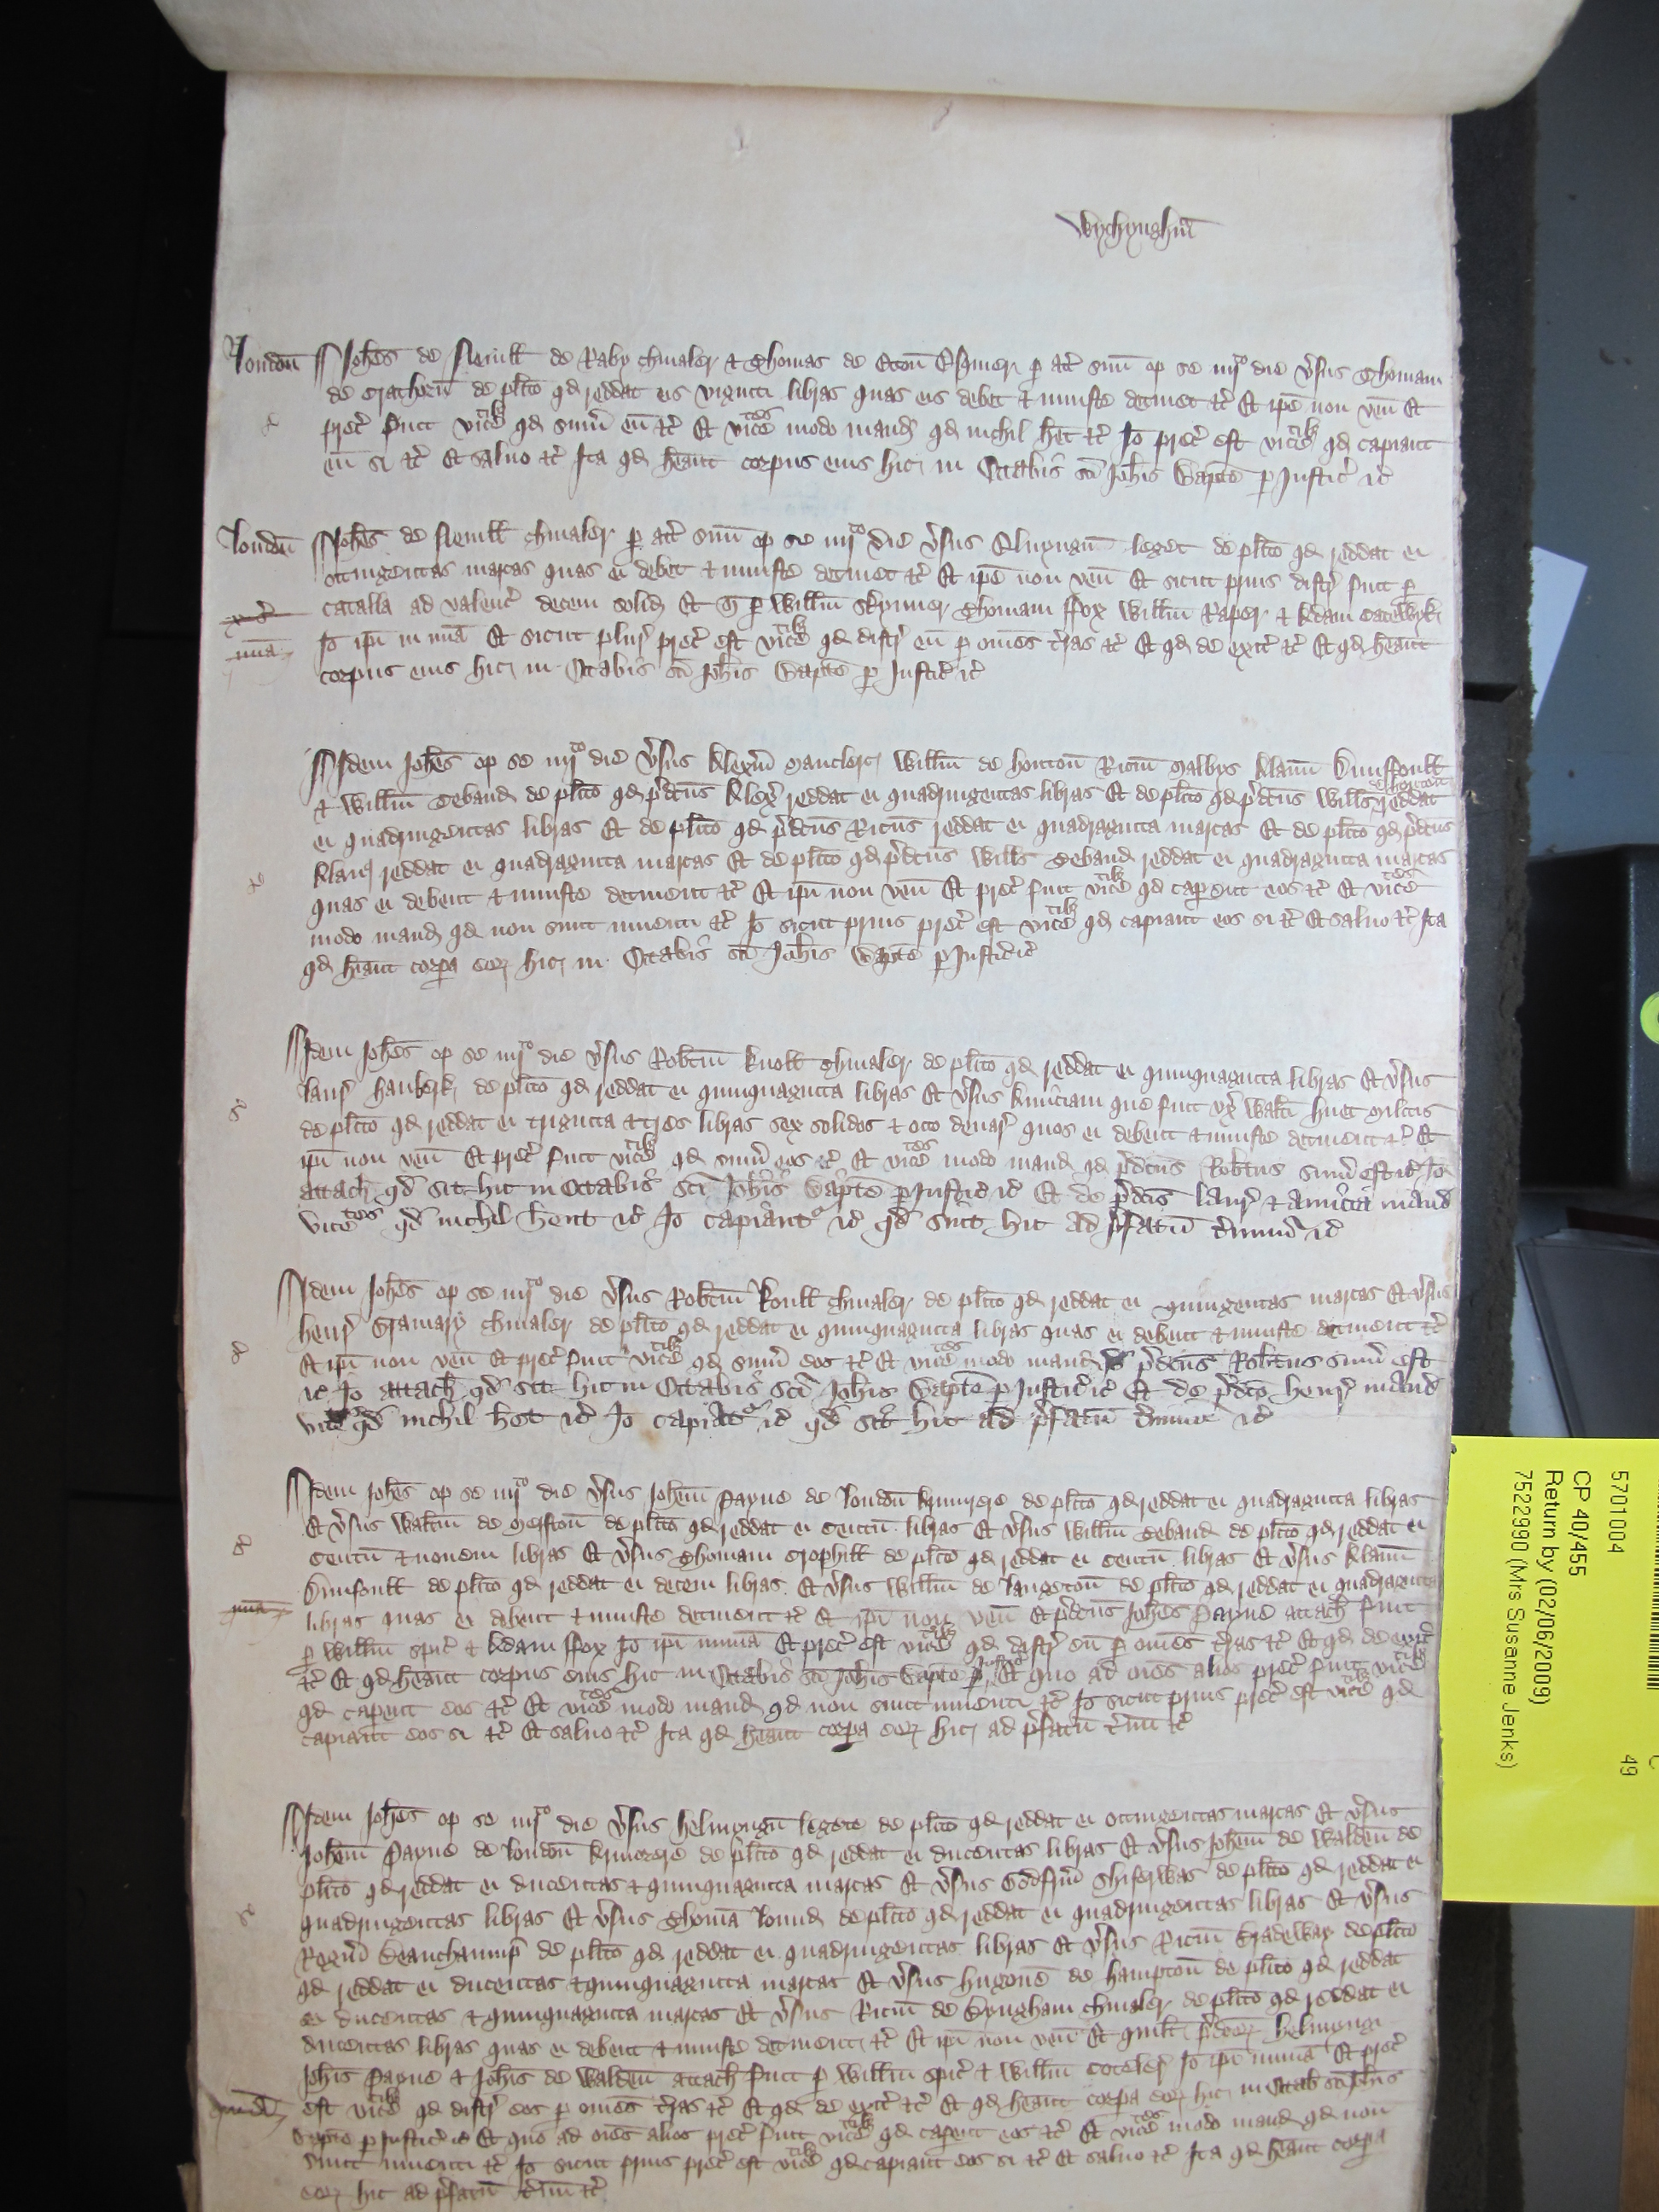 Wychyngham
London Joh̃es de Nevill de Raby chivaler & Thomas de Eton Esquier p att̃ suũ op se iiijto die ṽsus Thomam
de plĩto qd reddat eis viginti libras quas eis debet & iniuste detinet &c̃ Et ip̃e non veñ Et
prec̃ fuit vic̃ qd sum̃ eũ &c̃ Et vic̃ modo mand̃ qd nichil h̃et &c̃ Iõ prec̃ est vic̃ qd capiant
eũ si &c̃ Et salvo &c̃ Ita qd h̃eant corpus eius hic in Octabis sc̃i Joh̃is Bap̃te p Justic̃ &c̃
London Joh̃es de Nevill chivaler p att̃ suũ op se iiijto die ṽsus leget de plĩto qd reddat ei
octingentas marcas quas ei debet & iniuste detinet &c̃ Et ip̃e non veñ Et sicut prius distr̃ fuit p
catalla ad valenc̃ decem solid̃ Et M̃ p Willm̃ Skynner Thomam ffox Willm̃ Raper & Adam
m̃ia Iõ ip̃i in m̃ia Et sicut plur̃ prec̃ est vic̃ qd distr̃ eũ p om̃es t̃ras &c̃ Et qd de exit̃ &c̃ Et qd h̃eant
corpus eius hic in Octabis sc̃i Joh̃is Bap̃te p Justic̃ &c̃
Idem Joh̃es op se iiijto die ṽsus Alex̃m Mauclerc Willm̃ de Horton Ric̃m Malbys Alanũ
& Willm̃ Teband de plĩto qd p̃dc̃us Alex̃ reddat ei quadringentas libras Et de plĩto qd p̃dc̃us Wills̃ de Horton reddat
ei quadringentas libras Et de plĩto qd p̃dc̃us Ric̃us reddat ei quadraginta marcas Et de plĩto qd p̃dc̃us
Alanus reddat ei quadraginta marcas Et de plĩto qd p̃dc̃us Wills̃ Teband reddat ei quadraginta marcas
quas ei debent & iniuste detinent &c̃ Et ip̃i non veñ Et prec̃ fuit vic̃ qd caperent eos &c̃ Et vic̃
modo mand̃ qd non sunt inventi &c̃ Iõ sicut prius prec̃ est vic̃ qd capiant eos si &c̃ Et salvo &c̃ Ita
qd h̃eant corpora eoꝝ hic in Octabis sc̃i Joh̃is Bap̃te p Justic̃ &c̃
Idem Joh̃es op se iiijto die ṽsus Rob̃tum Knoll chivaler de plĩto qd reddat ei quinquaginta libras Et ṽsus
Laur̃ Hauberk de plĩto qd reddat ei quinquaginta libras Et ṽsus Amiciam que fuit ux̃ Walt̃i Huet militis
de plĩto qd reddat ei triginta & tres libras sex solidos & octo denar̃ quos ei debent & iniuste detinent &c̃ Et
ip̃i non veñ Et prec̃ fuit vic̃ qd sum̃ eos &c̃ Et vic̃ modo mand̃ qd p̃dc̃us Rob̃tus sum̃ est &c̃ Iõ
attach̃ qd sit hic in Octabis sc̃i Joh̃is Bap̃te p Justic̃ &c̃ Et de p̃dc̃is Laur̃ & Amicia mand̃
vic̃ qd nichil h̃ent &c̃ Iõ capiant̃ &c̃ qd sint hic ad p̃fatũ t̃minũ &c̃
Idem Joh̃es op se iiijto die ṽsus Rob̃tum Knoll chivaler de plĩto qd reddat ei quingentas marcas Et ṽsus
Henr̃ chivaler de plĩto qd reddat ei quinquaginta libras quas ei debent & iniuste detinent &c̃
Et ip̃i non veñ Et prec̃ fuit vic̃ qd sum̃ eos &c̃ Et vic̃ modo mand̃ qd p̃dc̃us Rob̃tus sum̃ est
&c̃ Iõ attach̃ qd sit hic in Octabis sc̃i Joh̃is Bap̃te p Justic̃ &c̃ Et de p̃dc̃o Henr̃ mand̃
vic̃ qd nichil h̃et &c̃ Iõ capiat̃ &c̃ qd sit hic ad p̃fatũ t̃minũ &c̃
Idem Joh̃es op se iiijto die ṽsus Joh̃em Payne de London Armurere de plĩto qd reddat ei quadraginta libras
Et ṽsus Walt̃m de de plĩto qd reddat ei centũ libras Et ṽsus Willm̃ Teband de plĩto qd reddat ei
centũ & novem libras Et ṽsus Thomam de plĩto qd reddat ei centũ libras Et ṽsus Alanũ
de plĩto qd reddat ei decem libras Et ṽsus Willm̃ de Langeton de plĩto qd reddat ei quadraginta
m̃ia libras quas ei debent & iniuste detinent &c̃ Et ip̃i non veñ Et p̃dc̃us Joh̃es Payne attach̃ fuit
p Willm̃ Spic̃ & Adam ffox Iõ ip̃i in m̃ia Et prec̃ est vic̃ qd distr̃ eũ p om̃es t̃ras &c̃ Et qd de exit̃
&c̃ Et qd h̃eant corpus eius hic in Octabis sc̃i Joh̃is Bap̃te p Justic̃ Et quo ad om̃es alios prec̃ fuit vic̃
qd caperent eos &c̃ Et vic̃ modo mand̃ qd non sunt inventi &c̃ Iõ sicut prius prec̃ est vic̃ qd
capiant eos si &c̃ Et salvo &c̃ Ita qd h̃eant corpora eoꝝ hic ad p̃fatũ t̃minũ &c̃
Idem Joh̃es op se iiijto die ṽsus Helmyngũ Legete de plĩto qd reddat ei octingentas marcas Et ṽsus
Joh̃em Payne de London Armurere de plĩto qd reddat ei ducentas libras Et ṽsus Joh̃em de Walden de
plĩto qd reddat ei ducentas & quinquaginta marcas Et ṽsus Godefrm̃ de plĩto qd reddat ei
quadringentas libras Et ṽsus Thomã de plĩto qd reddat ei quadringentas libras Et ṽsus
Rog̃um Beauchamp de plĩto qd reddat ei quadringentas libras Et ṽsus Ric̃m de plĩto
qd reddat ei ducentas & quinquaginta marcas Et ṽsus Hugonẽ de Hampton de plĩto qd reddat
ei ducentas & quinquaginta marcas Et ṽsus Ric̃m de chivaler de plĩto qd reddat ei
ducentas libras quas ei debent & iniuste detinent &c̃ Et ip̃i non veñ Et quilt̃ p̃dc̃oꝝ Helmyngi
Joh̃is Payne & Joh̃is de Walden attach̃ fuit p Willm̃ Spic̃ & Willm̃ Coteler Iõ ip̃i in m̃ia Et prec̃
m̃ia est vic̃ qd distr̃ eos p om̃es t̃ras &c̃ Et qd de exit̃ &c̃ Et qd h̃eant corpora eoꝝ hic in Octab̃ sc̃i Joh̃is
Bap̃te p Justic̃ &c̃ Et quo ad om̃es alios prec̃ fuit vic̃ qd caperent eos &c̃ Et vic̃ modo mand̃ qd non
sunt inventi &c̃ Iõ sicut prius prec̃ est vic̃ qd capiant eos si &c̃ Et salvo &c̃ Ita qd h̃eant corpora
eoꝝ hic ad p̃fatũ t̃minũ &c̃
5701004
49
CP 40/455
Return by (02/06/2009)
7522990 (Mrs Susanne Jenks)